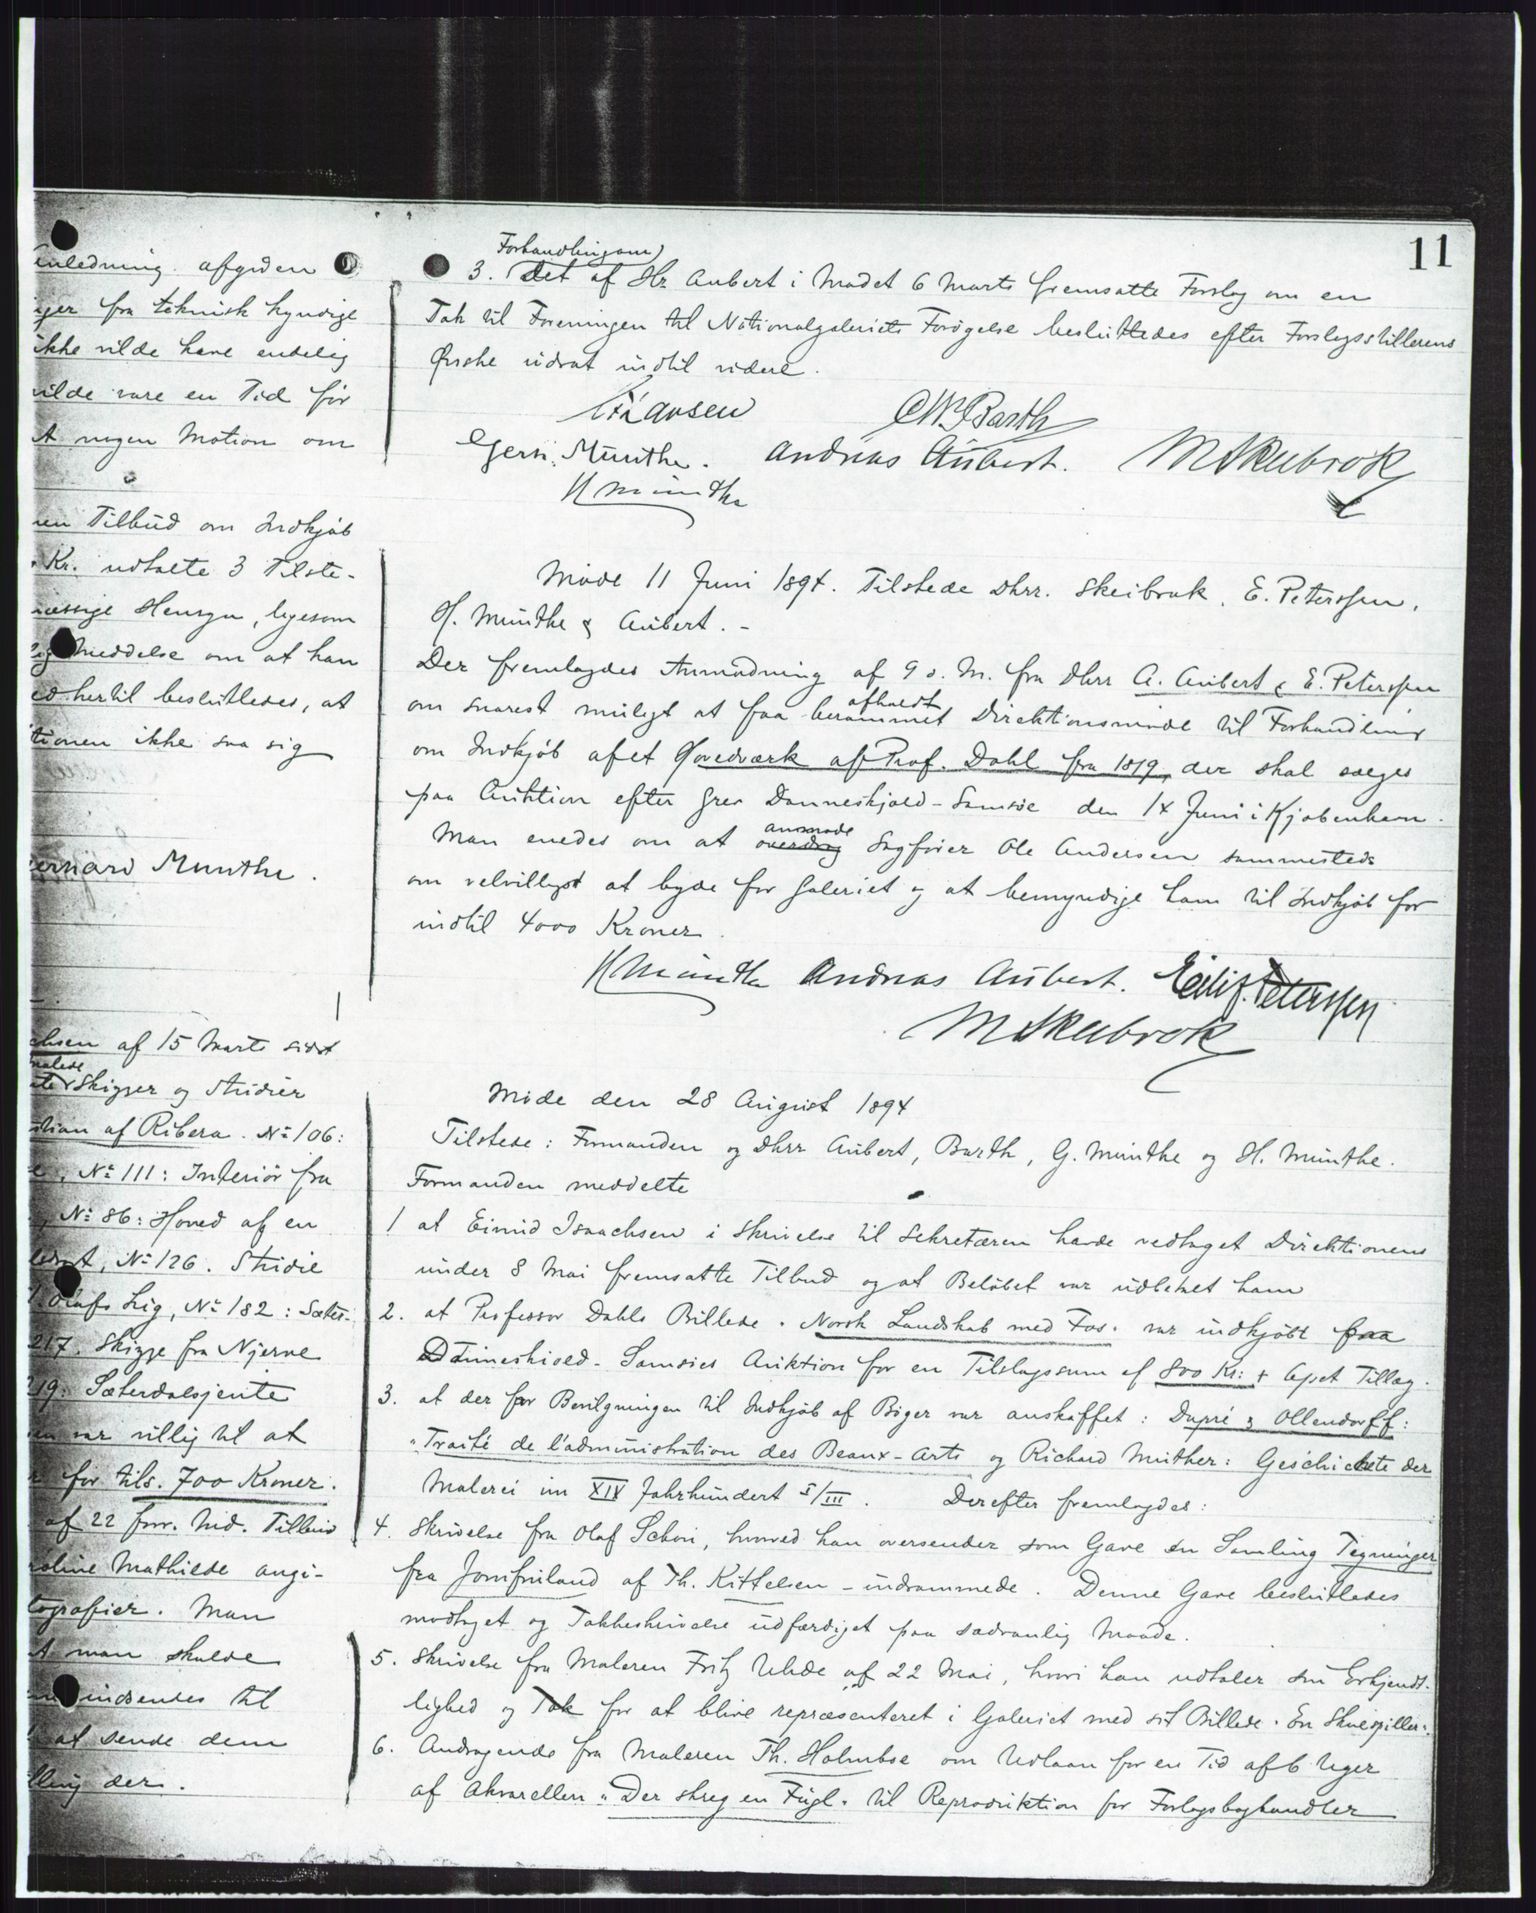 11
anledning afgiven
iger fra teknisk kyndige
ikke vilde have endelig
vilde vare en Tid før
At nogen Motion om
Tilbud om Indkjøb
Kr. udtalte 3 Tilste-
mæssige Hensyn, ligesom
Meddelse om at han
ed hertil besluttedes, at
tionen ikke saa sig
Gerhard Munthe.
chsen af 15 Marts sidst
malede
Skizzer og Studier
stian af Ribera. No 106:
No 111: Interiør fra
No 86: Hoved af en
No 126. Studie
Olafs Lig, No 182: Sæter-
217. Skizze fra Njerve
219: Sæterdalsjente
en var villig til at
for tils. 700 Kroner.
af 22 forr. Md. Tilbud
roline Mathilde angi-
tografier. Man
At man skulde
indsendes til
at sende dem
lling der.
Forhandling om
3. Det af Hr Aubert i Mødet 6 Marts fremsatte Forslag om en
Tak til Foreningen til Nationalgaleriets Forøgelse besluttedes efter Forslagsstillerens
Ønske udsat indtil videre.
CW Barth
Gerh. Munthe. Andreas Aubert. M Skeibrok
H Munthe
Møde 11 Juni 1894. Tilstede Dhrr. Skeibrok, E. Peterssen,
H. Munthe & Aubert. -
Der fremlagdes Anmodning af 9 d. M. fra Dhrr A. Aubert & E. Peterssen
om snarest muligt at faa berammet afholdt Direktionsmøde til Forhandling
om Indkjøb af et Hovedværk af Prof. Dahl fra 1819, der skal sælges
paa Auktion efter Grev Danneskjold-Samsøe den 14 Juni i Kjøbenhavn.
Man enedes om at overdrag anmode Sagfører Ole Andersen sammesteds
om velvilligst at byde for Galeriet og at bemyndige ham til Indkjøb for
indtil 4000 Kroner.
H Munthe Andreas Aubert. Eilif Peterssen
M Skeibrok
Møde den 28 August 1894
Tilstede: Formanden og Dhrr Aubert, Barth, G. Munthe og H. Munthe.
Formanden meddelte
1 at Eivind Isaachsen i Skrivelse til Sekretæren havde vedtaget Direktionens
under 8 Mai fremsatte Tilbud og at Beløbet var udbetalt ham
2. at Professor Dahls Billede "Norsk Landskab med Fos" var indkjøbt paa
Danneskiold-Samsøes Auktion for en Tilslagssum af 800 Kr: + Apct Tillæg.
3. at der for Bevilgningen til Indkjøb af Bøger var anskaffet: Dupré & Ollendorff:
"Traité de l'administration des Beaux-Arts og Richard Muther: Geschichte der
Malerei im XIX Jahrhundert I/III. Derefter fremlagdes:
4. Skrivelse fra Olaf Schou, hvorved han oversender som Gave en Samling Tegninger
fra Jomfruland af Th. Kittelsen - indrammede. Denne Gave besluttedes
modtaget og Takkeskrivelse udfærdiget paa sædvanlig Maade.
5. Skrivelse fra Maleren Fritz Uhde af 22 Mai, hvori han udtaler sin Erkjendt-
lighed og Tak for at blive repræsenteret i Galeriet med sit Billede "En Skuespiller".
6. Andragende fra Maleren Th. Holmboe om Udlaan for en Tid af 6 Uger
af Akvarellen "Der skreg en Fugl" til Reproduktion for Forlagsboghandler